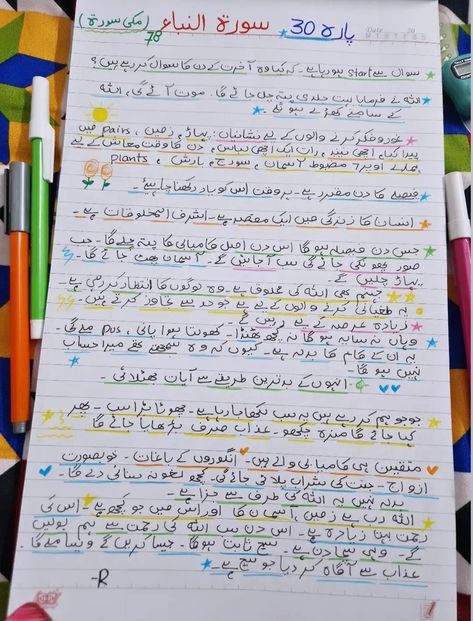 پارہ 30 سورۃ النباء (مکی سورۃ)
78
Date 20
M T W T F S S
سوال سے start ہو رہا ہے۔ کہ کیا وہ آخرت کے دن کا سوال کر رہے ہیں؟
اللہ نے فرمایا بہت جلدی پتہ چل جائے گا۔ موت آئے گی، اللہ
کے سامنے کھڑے ہونگے۔
غوروفکر کرنے والوں کے لیے نشانیاں: پہاڑ، زمین، pairs میں
پیدا کیا، اچھی نیند، رات ایک اچھی لباس، دن کا وقت معاش کے لیے
ہمارے اوپر 7 مضبوط آسمان، سورج، بارش، plants
فیصلے کا دن مقرر ہے۔ ہر وقت اس کو یاد رکھنا چاہیئے۔
انسان کا زندگی میں ایک مقصد ہے۔ اشرف المخلوقات ہے۔
جس دن فیصلہ ہو گا اس دن اصل کامیابی کا پتہ چلے گا۔ جب
صور پھونکی جائے گی سب آجائیں گے۔ آسمان پھٹ جائے گا۔
پہاڑ چلیں گے۔
جہنم بھی اللہ کی مخلوق ہے۔ وہ لوگوں کا انتظار کر رہی ہے۔
یہ طغیانی کرنے والوں کے لیے ہے جو حد سے تجاوز کرتے ہیں۔
زیادہ عرصہ کے لیے رہیں گے۔
وہاں نہ سایہ ہو گا نہ کچھ ٹھنڈا۔ کھولتا ہوا پانی، pus ملے گی
یہ ان کے کام کا بدلہ ہے۔ کیوں کہ وہ سمجھتے تھے میرا حساب
نہیں ہو گا۔
انہوں کے بدترین طریقے سے آیات جھٹلائی۔
جو جو ہم کر رہے ہیں یہ سب لکھا جا رہا ہے۔ چھوٹا بڑا سب۔ پھر
کہا جائے گا مزہ چکھو۔ عذاب صرف بڑھایا جائے گا
متقین ہی کامیابی والے ہیں۔ انگوروں کے باغات۔ خوبصورت
ازواج۔ جنت کی شراب پلائی جائے گی۔ کچھ لغو نہ سنائی دے گا۔
بدلہ نہیں یہ اللہ کی طرف سے جزا ہے۔
اللہ رب ہے زمین، آسمان کا اور اس میں جو کچھ ہے۔ اس کی
رحمت اپنا زیادہ ہے۔ اس دن سب اللہ کی رحمت سے ہم بولیں
گے۔ وہی سچا دن ہے۔ سچ ثابت ہوگا۔ جیسا کریں گے ویسا ملے گا۔
عذاب سے آگاہ کر دیا جو سچ ہے۔
-R